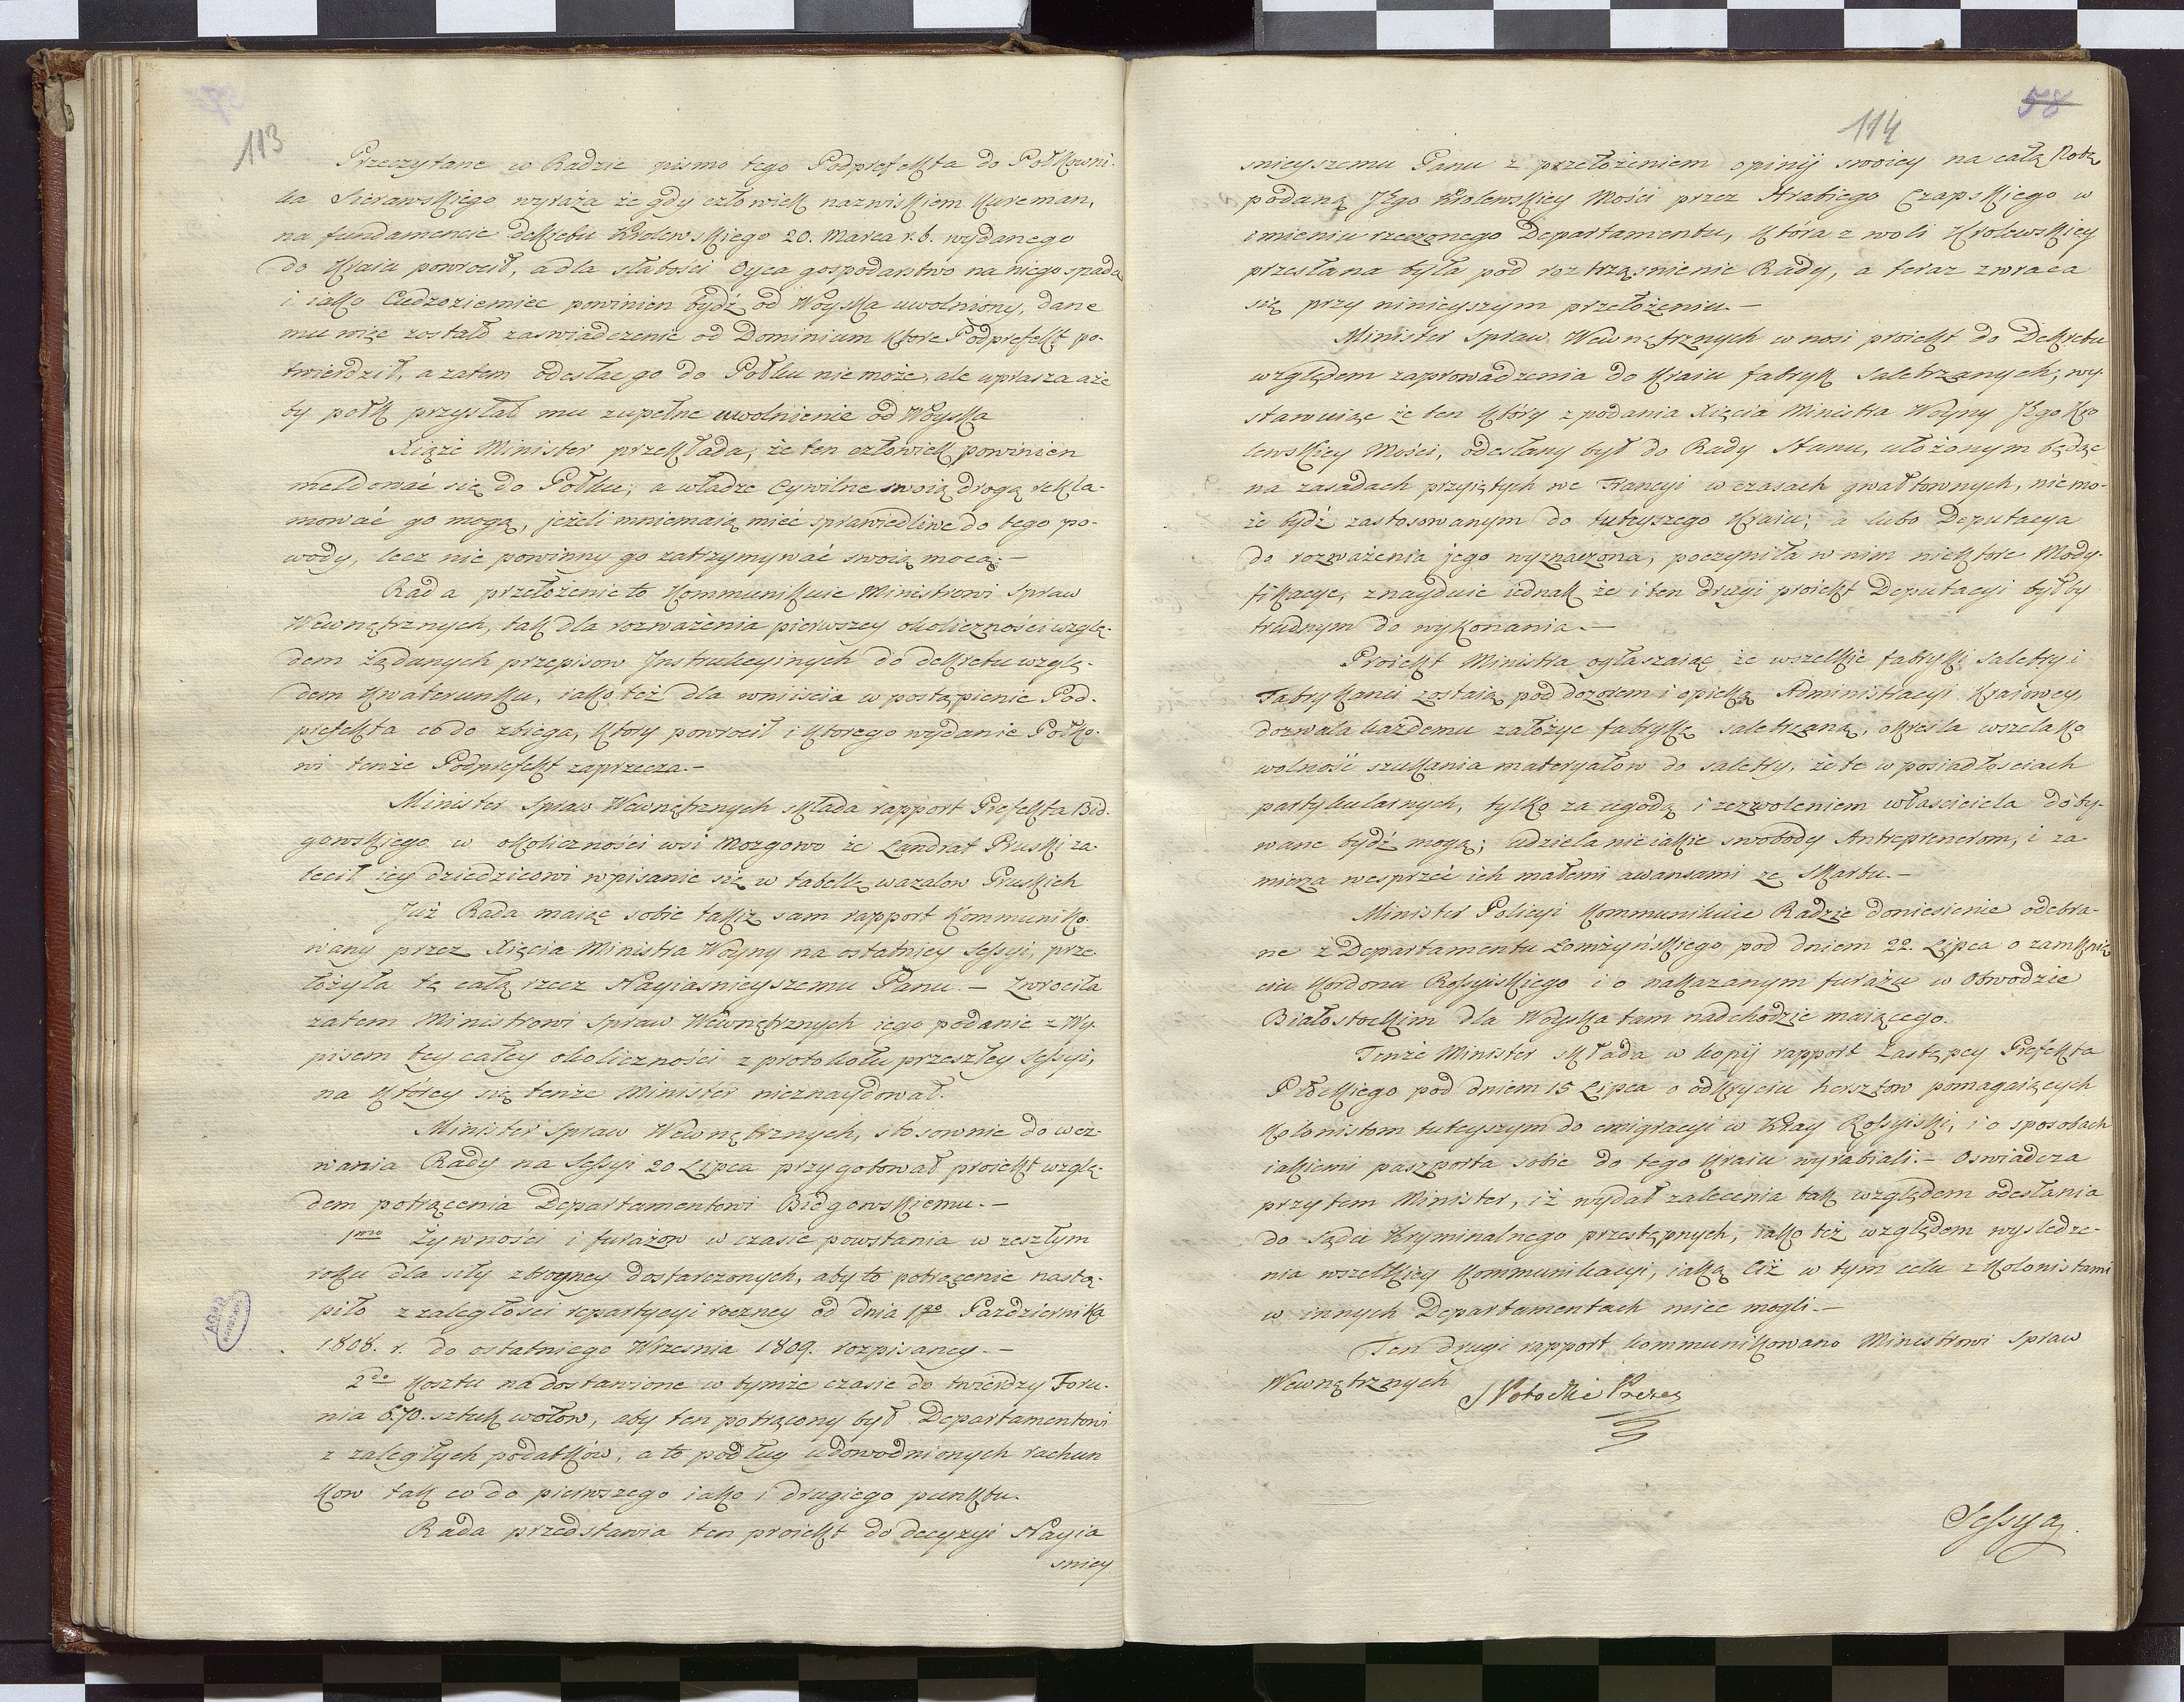 113
Przeczytane w Radzie pismo tego Podprefekta do Połkowni-
ka Sierawskiego wyraża że gdy człowiek nazwiskiem Kureman,
na fundamencie dekretu Krolewskiego 20. Marca r. b. wydanego
do Kraiu powrocił, a dla słabości Oyca gospodarstwo na niego spada
i iako Cudzoziemiec powinien bydź od Woyska uwolniony, dane
mu więc zostało zaswiadczenie od Dominium ktore Podprefekt po-
twierdził, a zatem odesłac go do Połku nie może, ale uprasza aże
by połk przysłał mu zupełne uwolnienie od Woyska
Xiąże Minister przekłada, że ten człowiek powinien
meldować się do Połku; a władze Cywilne swoią drogą rekla-
mować go mogą, jeżeli mniemaią mieć sprawiedliwe do tego po-
wody, lecz nie powinny go zatrzymywać swoią mocą.-
Rada przełożenie to Kommunikuie Ministrowi Spraw
Wewnętrznych, tak dla rozważenia pierwszey okoliczności wzglę-
dem żądanych przepisow Instrukcyinych do dekretu wzglę-
dem Kwaterunku, iako też dla wniiscia w postąpienie Pod-
prefekta co do zbiega, ktory powrocił i ktorego wydanie Połko-
wi tenże Podprefekt zaprzecza.-
Minister Spraw Wewnętrznych składa rapport Prefekta Bid-
gowskiego w okoliczności wsi Mozgowo że Landrat Pruski za-
lecił iey dziedzicowi wpisanie się w tabellę wazalow Pruskich
Już Rada maiąc sobie takiż sam rapport Kommuniko-
wany przez Xięcia Ministra Woyny na ostatniey Sessyi, prze-
łożyła tę całą rzecz Nayiasnieyszemu Panu.- Zwrociła
zatem Ministrowi Spraw Wewnętrznych iego podanie z Wy-
pisem tey całey okoliczności z protokołu przeszłey Sessyi,
na ktorey się tenże Minister nieznaydował.
Minister Spraw Wewnętrznych, stosownie do wez-
wania Rady na Sessyi 20 Lipca przygotował proiekt wzglę-
dem potrącenia Departamentowi Bidgowskiemu.-
1mo Żywności i furażow w czasie powstania w zeszłym
roku dla siły zbroyney dostarczonych, aby to potrącenie nastą-
piło z zaległości repartycyi roczney od dnia 1go Pazdziernika
1808. r. do ostatniego Wrzesnia 1809. rozpisaney.-
2do Kosztu na dostawione w tymże czasie do twierdzy Toru-
nia 670. sztuk wołow, aby ten potrącony był Departamentowi
z zaległych podatków, a to podług udowodnionych rachun
kow tak co do pierwszego iako i drugiego punktu.
Rada przedstawia ten proiekt do decyzyi Nayia
sniey
58
114
snieyszemu Panu z przełożeniem opinij swoiey na całą Notę
podaną JEgo Krolewskiey Mości przez Hrabiego Czapskiego w
imieniu rzeczonego Departamentu, która z woli Krolewskiey
przesłana była pod roztrząsnienie Rady, a teraz zwraca
się przy ninieyszym przełożeniu.-
Minister Spraw Wewnętrznych wnosi proiekt do Dekretu
względem zaprowadzenia do Kraiu fabryk saletrzanych; wy-
stawuiąc że ten który z podania Xięcia Ministra Woyny JEgo Kro
lewskiey Mości, odesłany był do Rady Stanu, ułożonym będąc
na zasadach przyiętych we Francyi w czasach gwałtownych, niemo-
że bydź zastosowanym do tuteyszego Kraiu; a lubo Deputacya
do rozważenia jego wyznaczona, poczyniła w nim niektore Mody-
fikacye, znayduie iednak że i ten drugi proiekt Deputacyi byłby
trudnym do wykonania.-
Proiekt Ministra ogłaszaiąc że wszelkie fabryki saletry i
Fabrykanci zostaią pod dozorem i opieką Administracyi Krajowey,
dozwala każdemu założyc fabrykę saletrzaną, okresla wszelako
wolność szukania materyałow do saletry, że te w posiadłosciach
partykularnych, tylko za ugodą i zezwoleniem własciciela doby-
wane bydź mogą; udziela nieiakie swobody Antreprenerom, i za-
mierza wesprzeć ich małemi awansami ze Skarbu.-
Minister Policyi Kommunikuie Radzie doniesienie odebra-
ne z Departamentu Łomżyńskiego pod dniem 22. Lipca o zamknię
ciu Kordonu Rossyiskiego i o nakazanym furażu w Obwodzie
Białostockim dla Woyska tam nadchodzic maiącego.
Tenże Minister składa w kopij rapport Zastępcy Prefekta
Płockiego pod dniem 15 Lipca o odkryciu hersztow pomagaiących
Kolonistom tuteyszym do emigracyi w Kray Rossyiski, i o sposobach
iakiemi paszporta sobie do tego Kraiu wyrabiali.- Oswiadcza
przytem Minister, iż wydał zalecenia tak względem odesłania
do Sądu Kryminalnego przestępnych, iako też względem wysledze-
nia wszelkiey Kommunikacyi, iaką Ciż w tym celu z Kolonistami
w innych Departamentach miec mogli.-
Ten drugi rapport kommunikowano Ministrowi Spraw
Wewnętrznych
S Potocki Prezes
Sessya.